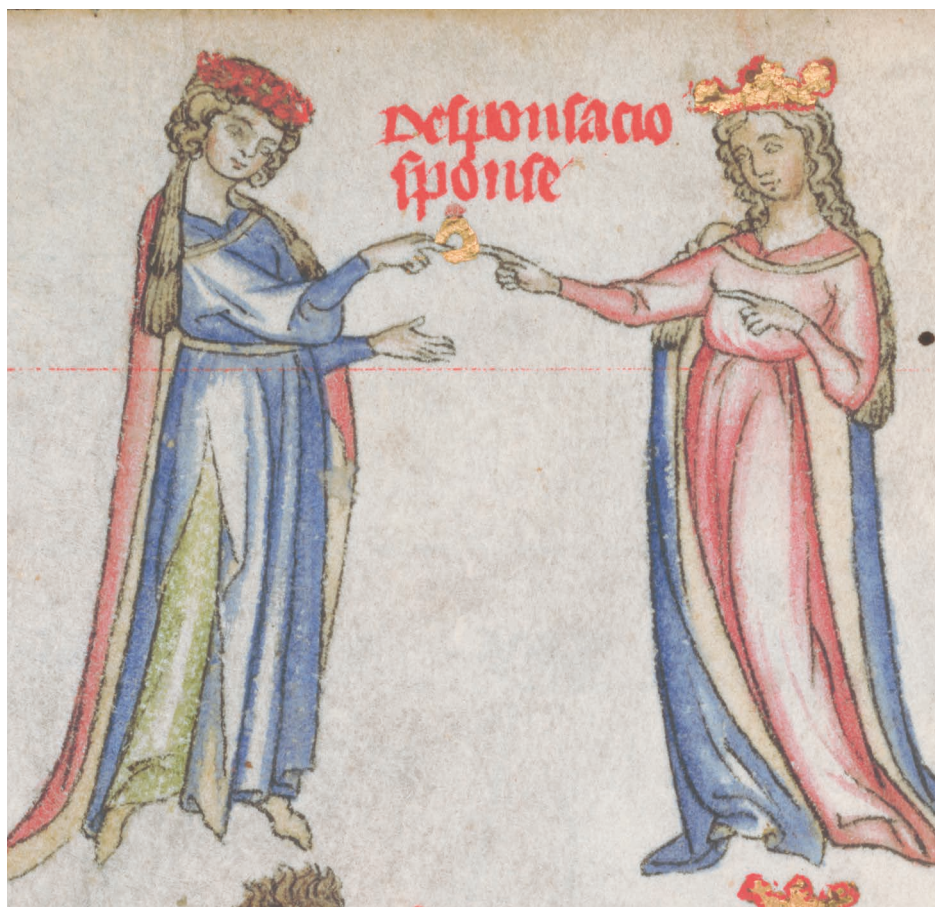 Desponsacio
sponse